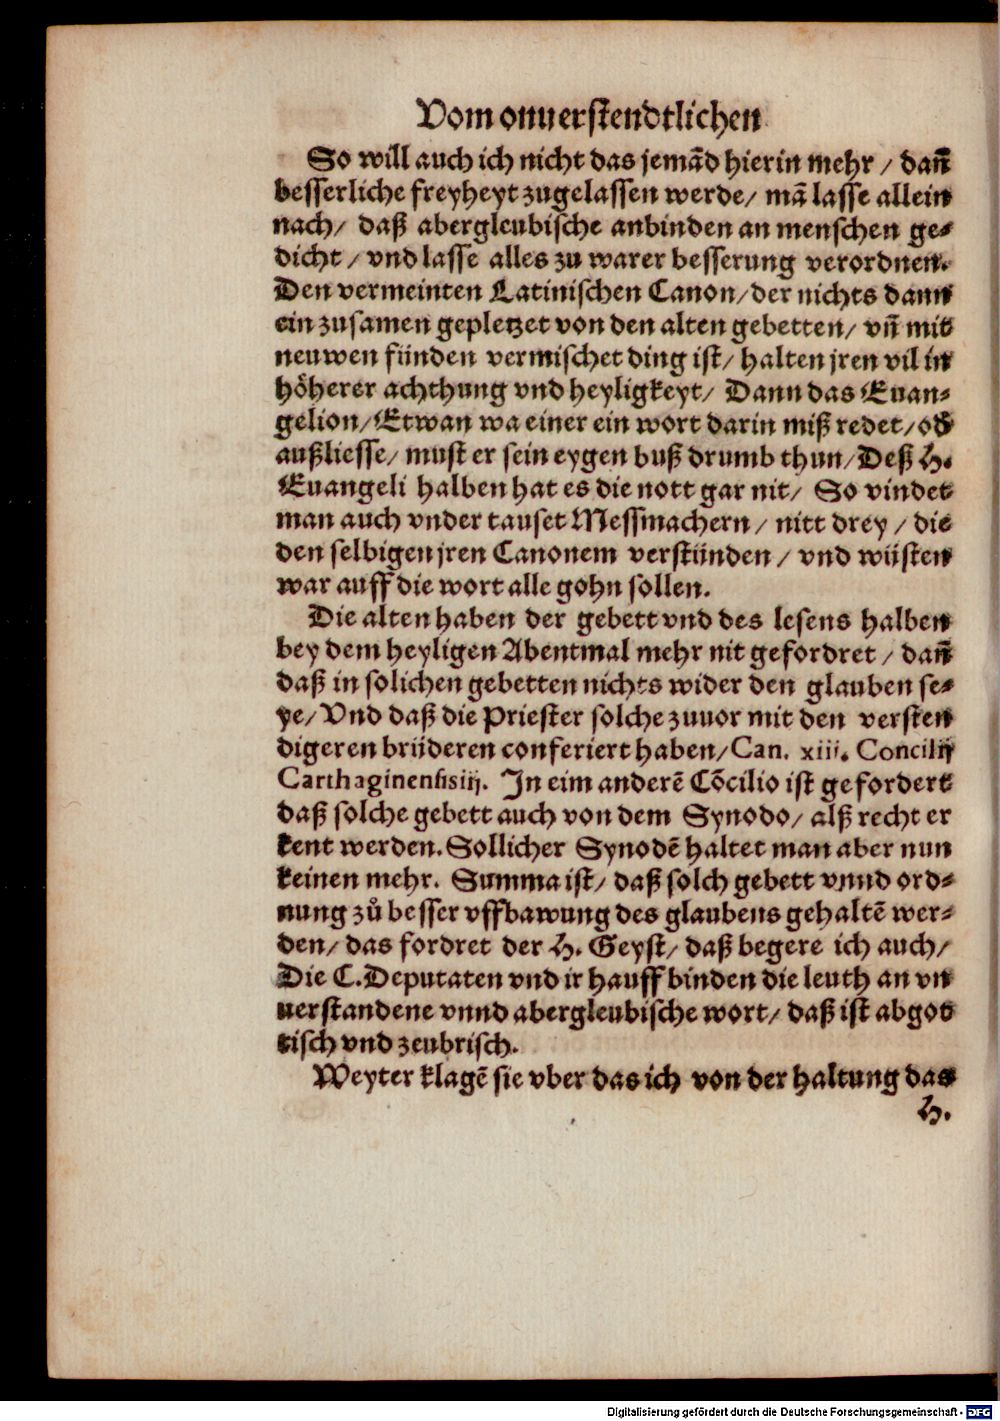 Vom onuerstendtlichen
So will auch ich nicht das jemãd hierin mehr / dañ
besserliche freyheyt zugelassen werde / mã lasse allein
nach / daß abergleubische anbinden an menschen ge⸗
dicht / vnd lasse alles zu warer besserung verordnen.
Den vermeinten Latinischen Canon / der nichts dann
ein zusamen gepletzet von den alten gebetten / vñ mit
neuwen fünden vermischet ding ist / halten jren vil in
höherer achthung vnd heyligkeyt / Dann das Euan⸗
gelion / Etwan wa einer ein wort darin miß redet / od
außliesse / must er sein eygen buß drumb thun / Deß H.
Euangeli halben hat es die nott gar nit / So vindet
man auch vnder tauset Messmachern / nitt drey / die
den selbigen jren Canonem verstünden / vnd wüsten
war auff die wort alle gohn sollen.
Die alten haben der gebett vnd des lesens halben
bey dem heyligen Abentmal mehr nit gefordret / dañ
daß in solichen gebetten nichts wider den glauben se⸗
ye / Vnd daß die Priester solche zuuor mit den versten
digeren brüderen conferiert haben / Can. xiii. Concilij
Carthaginensis iij. In eim anderẽ Cõcilio ist gefordert
daß solche gebett auch von dem Synodo / alß recht er
kent werden. Sollicher Synodẽ haltet man aber nun
keinen mehr. Summa ist / daß solch gebett vnnd ord⸗
nung zů besser vffbawung des glaubens gehaltẽ wer⸗
den / das fordret der H. Geyst / daß begere ich auch /
Die C. Deputaten vnd ir hauff binden die leuth an vn
uerstandene vnnd abergleubische wort / daß ist abgot
tisch vnd zeubrisch.
Weyter klagẽ sie vber das ich von der haltung das
H.
Digitalisierung gefördert durch die Deutsche Forschungsgemeinschaft - DFG